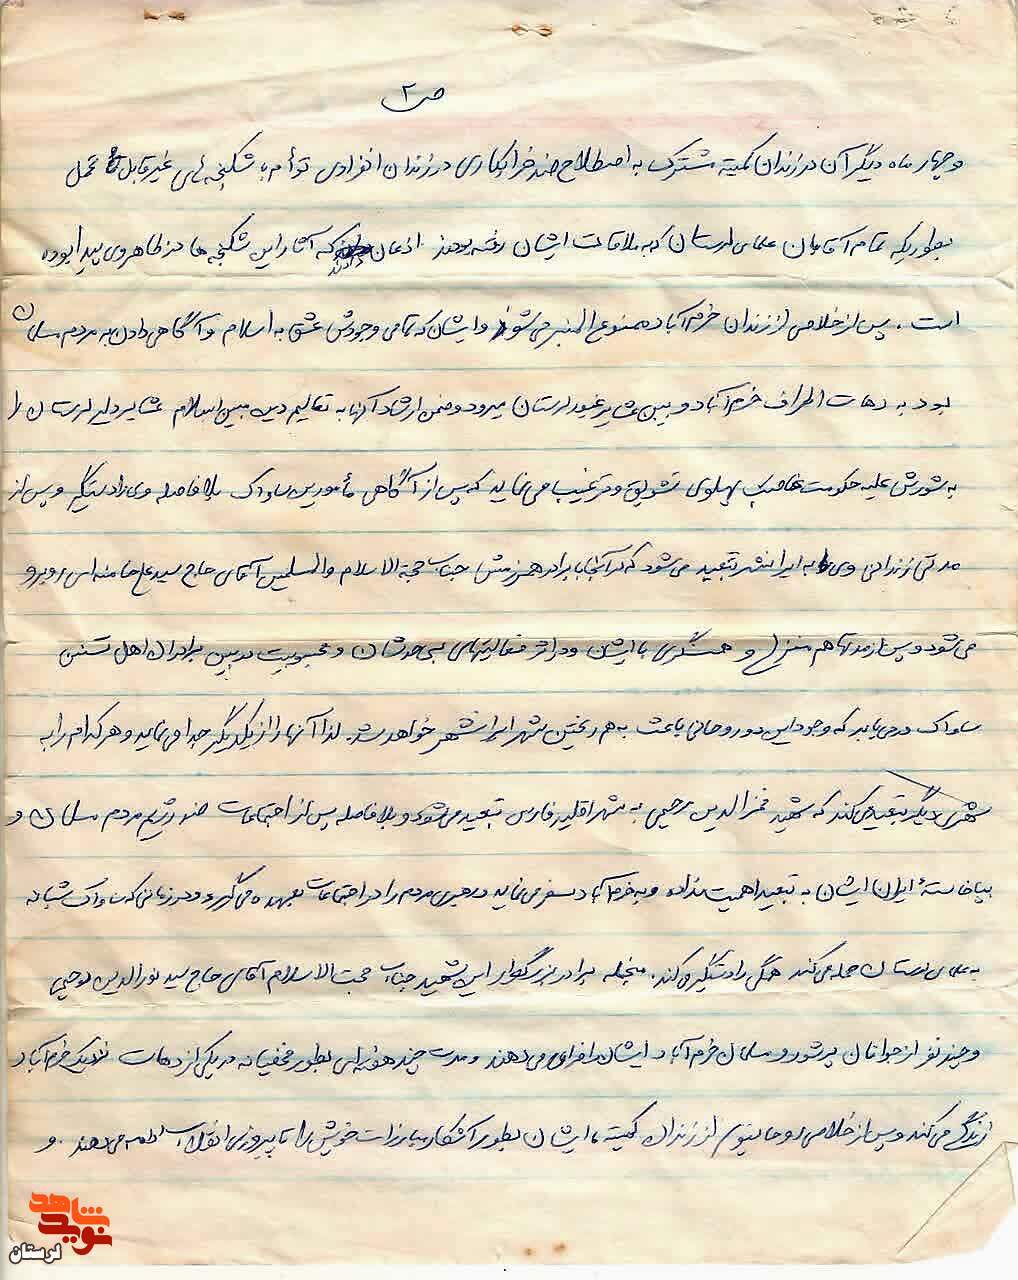 ص ۲
و چهار ماه دیگر آن در زندان کمیته مشترک به اصطلاح ضد خرابکاری در زندان انفرادی توأم با شکنجه‌های غیر قابل تحمل
بطوریکه تمام آقایان علمای لرستان که به ملاقات ایشان رفته بودند اذعان دارند که آثار این شکنجه ها در ظاهر وی پیدا بوده
است . پس از خلاصی از زندان خرم آباد ممنوع المنبر می‌شود و ایشان که تمامی وجودش عشق به اسلام و آگاهی دادن به مردم مسلمان
بود به دهات اطراف خرم آباد و بین عشایر غیور لرستان میرود و ضمن ارشاد آنها به تعالیم دین مبین اسلام عشایر دلیر لرستان را
به شورش علیه حکومت غاصب پهلوی تشویق و ترغیب می نماید که پس از آگاهی مأمورین ساواک بلافاصله وی را دستگیر و پس از
مدتی زندانی وی را به ایرانشهر تبعید می شود که در آنجا با برادر همرزمش جناب حجة الاسلام والمسلمین آقای حاج سید علی خامنه ای روبرو
می شود و پس از مدتها هم منزل و همسنگری با ایشان و در اثر فعالیتهای بی حدشان و محبوبیت در بین برادران اهل تسنن
ساواک در می یابد که وجود این دو روحانی باعث به هم ریختن شهر ایرانشهر خواهد شد. لذا آنها را از یکدیگر جدا می نماید و هر کدام را به
شهری دیگر تبعید می کند که شهید فخرالدین رحیمی به شهر اقلید فارس تبعید می شود و بلافاصله پس از اجتماعات ضد رژیم مردم مسلمان و
بپاخاستهٔ ایران ایشان به تبعید اهمیت نداده و به خرم آباد سفر می نماید و رهبری مردم را در اجتماعات بعهده می گیرد و در زمانی که ساواک شبانه
به علمای لرستان حمله می کند همگی را دستگیر می کند. منجمله برادر بزرگوار این شهید جناب حجت الاسلام آقای حاج سید نورالدین رحیمی
و چند نفر از جوانان پر شور و مسلمان خرم آباد ایشان را فراری می دهند و مدت چند هفته ای بطور مخفیانه در یکی از دهات نزدیک خرم آباد
زندگی می کند و پس از خلاصی روحانیون از زندان کمیته ایشان بطور آشکار مبارزات خویش را تا پیروزی انقلاب ادامه می دهند . و
شاهد
نوید
لرستان